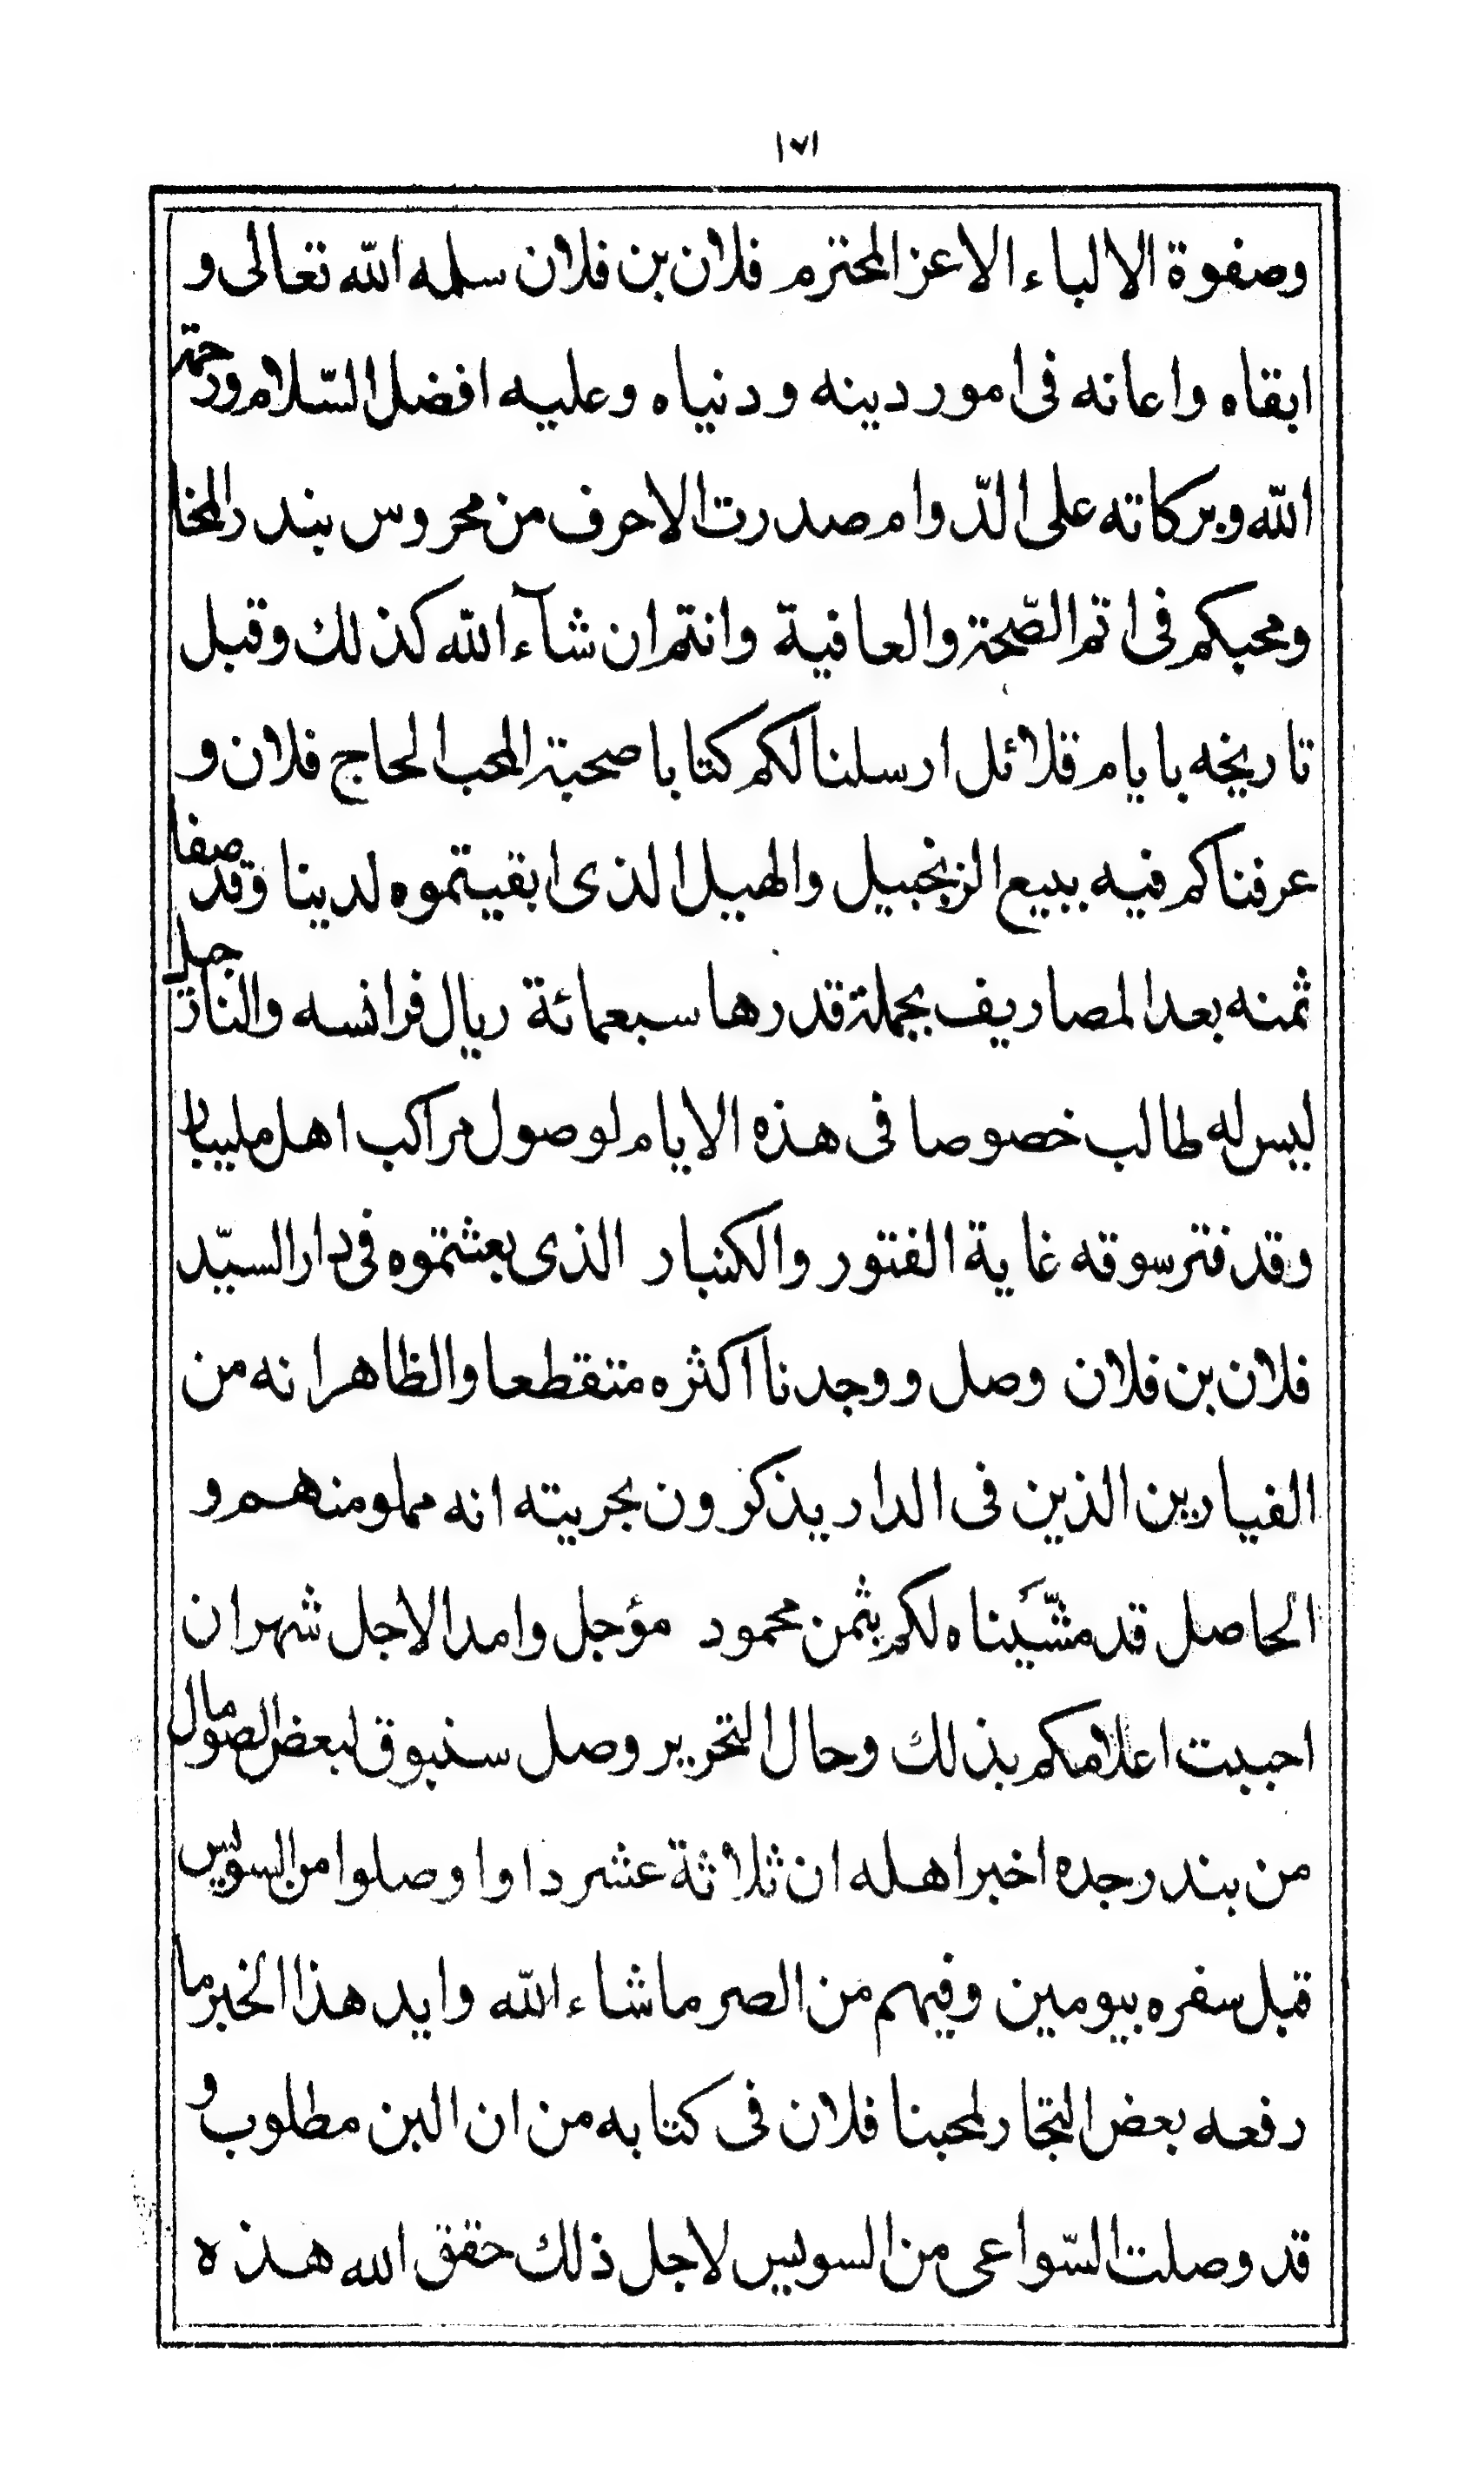 ١٧١
وصفوة الالباء الاعز المحترم فلان بن فلان سلمه الله تعالى و
ابقاه واعانه فى امور دينه ودنياه وعليه افضل السّلام ورحمة
الله وبركاته على الدّوام صدرت الاحرف من محروس بندر المخا
ومحبكم فى اتم الصّحة والعافية وانتم ان شآء الله كذلك وقبل
تاريخه بايام قلائل ارسلنا لكم كتابا صحبة المحب الحاج فلان و
عرفناكم فيه ببيع الزنجبيل والهيل الذى ابقيتموه لدينا وقد صفا
ثمنه بعد المصاريف بجملة قدرها سبعمائة ريال فرانسه والنارجيل
ليس له طالب خصوصا فى هذه الايام لوصول مراكب اهل مليبار
وقد فتر سوقه غاية الفتور والكنبار الذى بعثتموه فى دار السيّد
فلان بن فلان وصل ووجدنا اكثره متقطعا والظاهر انه من
الفيارين الذين فى الدار يذكرون بحريته انه مملو منهم و
الحاصل قد مشّيناه لكم بثمن محمود مؤجل وامد الاجل شهران
احببت اعلامكم بذلك وحال التحرير وصل سنبوق لبعض الصومال
من بندر جده اخبر اهله ان ثلاثة عشر داوا وصلوا من السويس
قبل سفره بيومين وفيهم من الصر ماشاء الله وايد هذا الخبر ما
رفعه بعض التجار لمحبنا فلان فى كتابه من ان البن مطلوب و
قد وصلت السّواعى من السويس لاجل ذلك حقق الله هذه